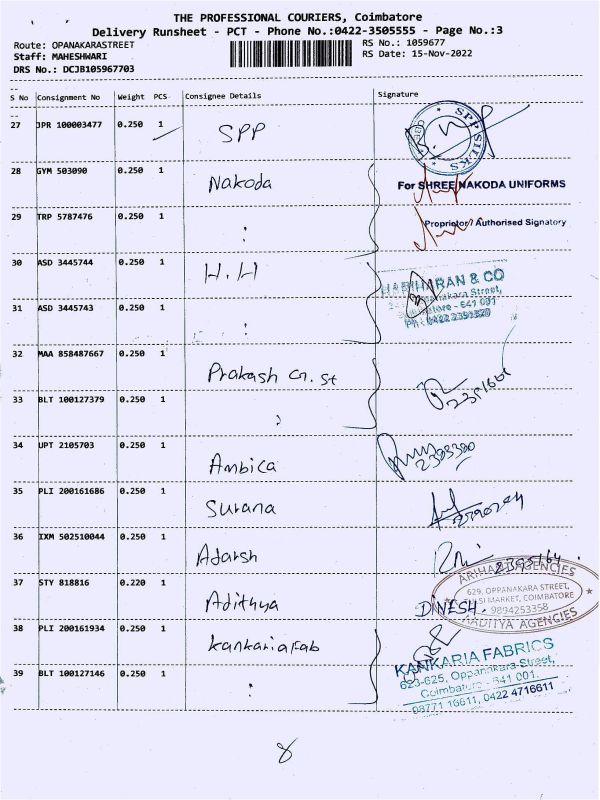 THE PROFESSIONAL COURIERS, Coimbatore
Delivery Runsheet - PCT - Phone No.:0422-3505555 - Page No.:3
Route: OPANAKARASTREET
RS No.: 1059677
Staff: MAHESHWARI
RS Date: 15-Nov-2022
DRS No.: DCJB105967703
S No Consignment No Weight PCS Consignee Details Signature
27 JPR 100003477 0.250 1 SPP
SPP SILKS
28 GYM 503090 0.250 1 Nakoda
For SHREE NAKODA UNIFORMS
29 TRP 5787476 0.250 1 :
Proprietor / Authorised Signatory
30 ASD 3445744 0.250 1 H.H
HARIHARAN & CO
Street,
641 001
31 ASD 3445743 0.250 1 :
Ph : 0422 2391320
32 MAA 858487667 0.250 1 Prakash Gn. St
33 BLT 100127379 0.250 1
34 UPT 2105703 0.250 1 Ambica
2393300
35 PLI 200161686 0.250 1 Surana
36 IXM 502510044 0.250 1 Adarsh
2395164
ARIHANT AGENCIES
37 STY 818816 0.220 1 Adithya
629, OPPANAKARA STREET,
MARKET, COIMBATORE
9894253358
AADITYA AGENCIES
DINESH.
38 PLI 200161934 0.250 1 Kankaria Fab
KANKARIA FABRICS
39 BLT 100127146 0.250 1 :
623-625, Oppanakara Street,
Coimbatore - 641 001.
98771 16611, 0422 4716611
8